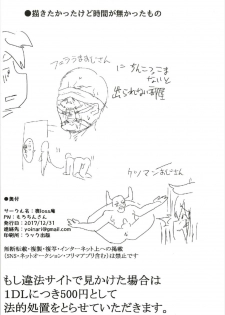 ●描きたかったけど時間が無かったもの
フェラうまおじさん
に
ちんころこま
ないと
出られない部屋
ケツマンおじさん
●奥付
発行日:2017/12/31
連絡先:yoinari@gmail.com
印刷所:ラック出版
無断転載・複製・複写・インターネット上への掲載
(SNS・ネットオークション・フリマアプリ含む)は禁止です
もし違法サイトで見かけた場合は
1DLにつき500円として
法的処置をとらせていただきます。